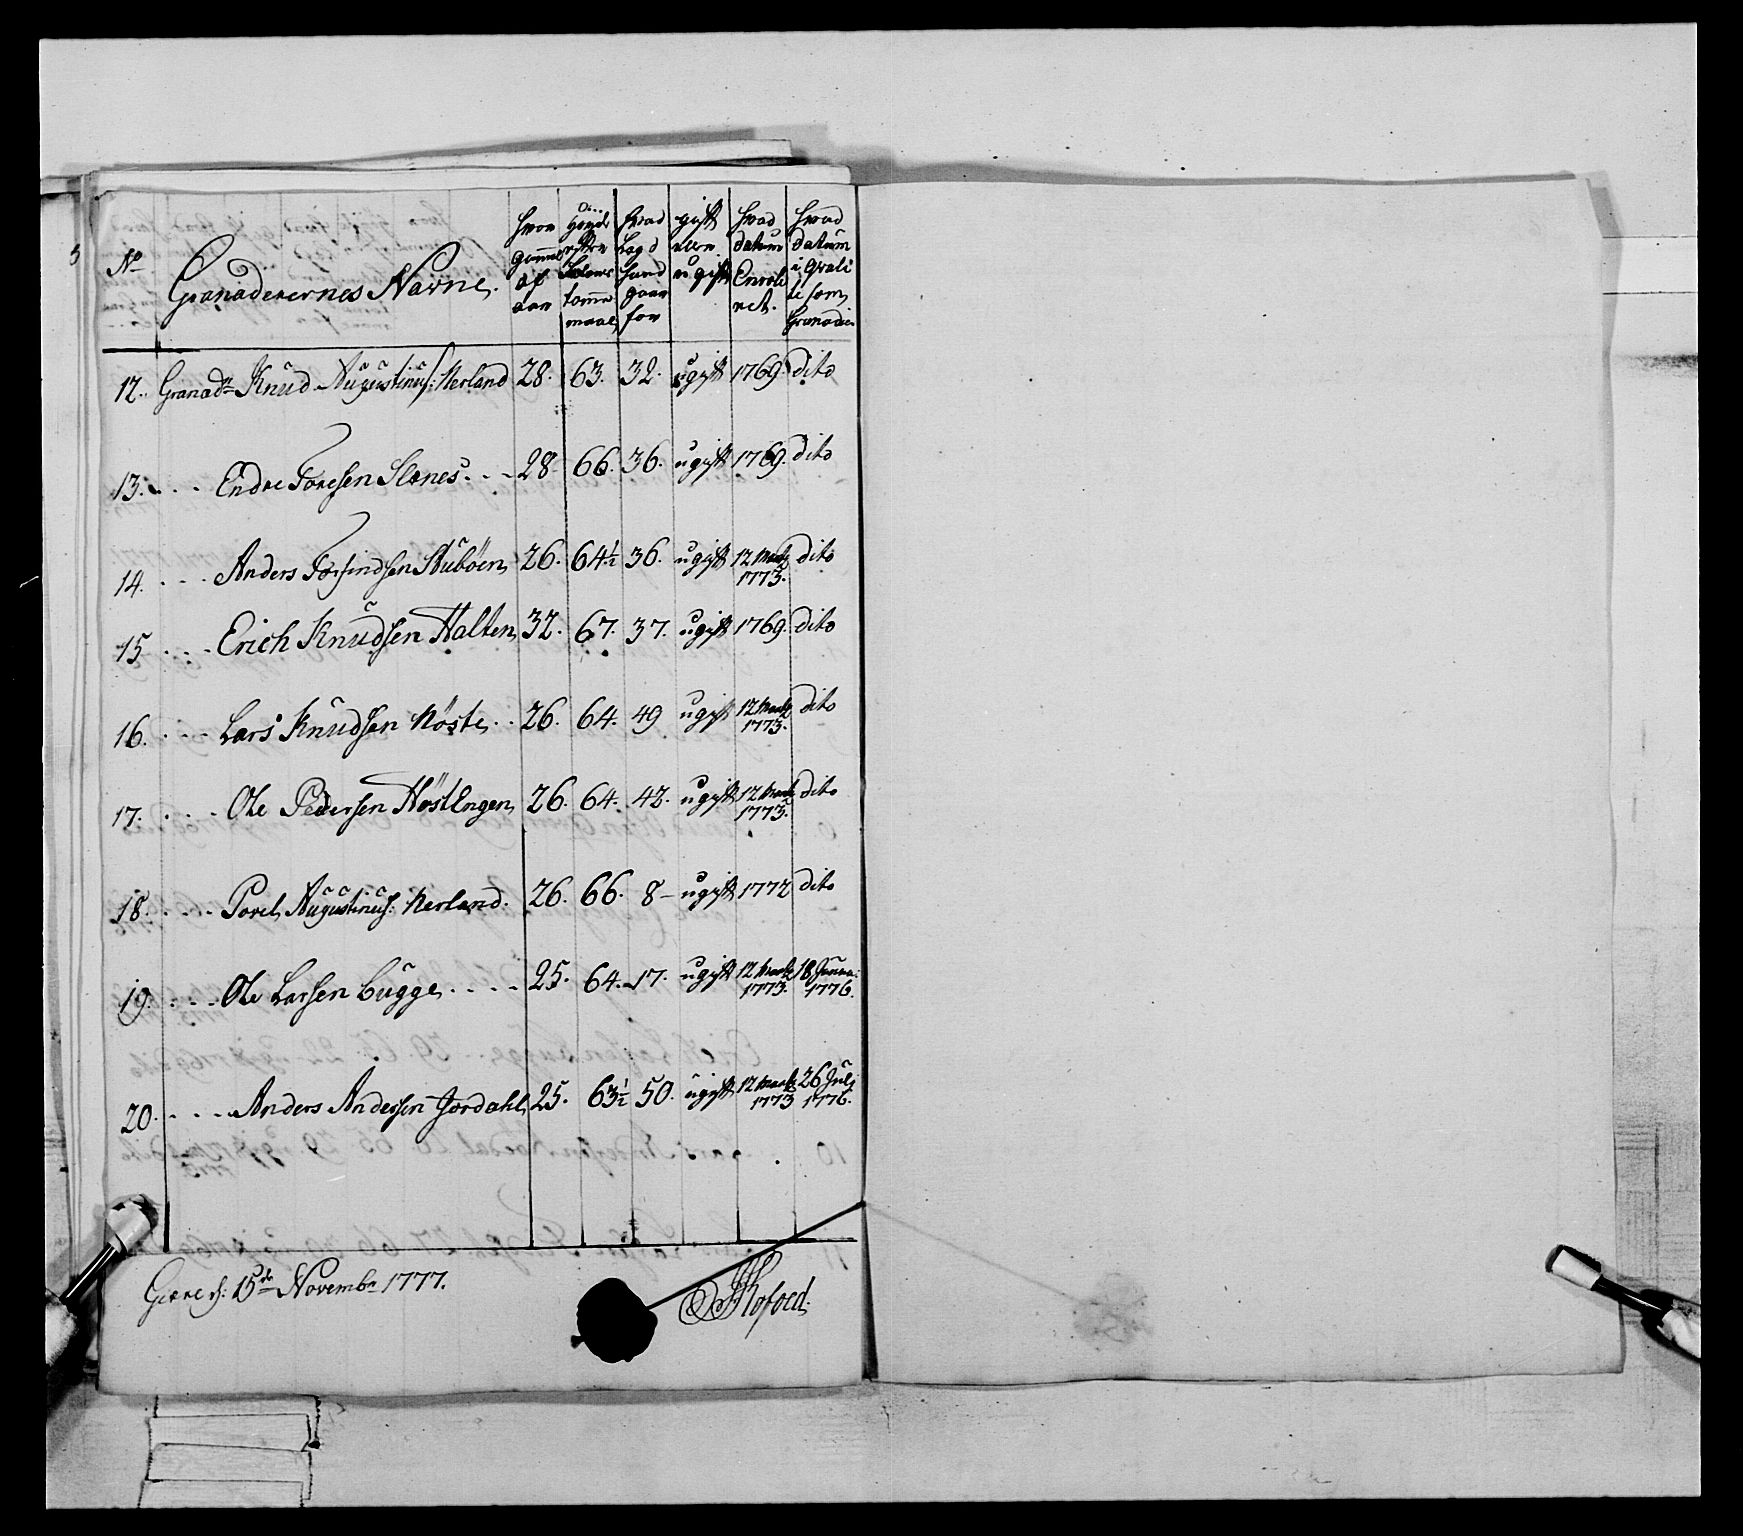 No
Granaderernes Navne.
hvor gammel af aar
høyde efter tomme maal
hvad Lægd hand gaar for
gift eller ugift
hvad datum Enroleret.
hvad datum i qvalite som Granadeer
12. Granadr Knud Augustinus: Nerland 28. 63. 32. ugift 1769. dito
13. - - - Endre Toresen Slenes. - - 28. 66. 36. ugift 1769. dito
14. - - - Anders Torfindsen Stuböen 26. 64½ 36. ugift 12 Martz 1773. dito
15 - - - Erich Knudsen Halten 32. 67. 37. ugift 1769. dito
16. - - - Lars Knudsen Nöste - - 26. 64. 49 ugift 12 Martz 1773. dito
17. - - - Ole Pedersen HöstEngen 26. 64. 42. ugift 12 Martz 1773. dito
18. - - - Povel Augustinus: Nerland. 26. 66. 8 - ugift 1772 dito
19. - - - Ole Larsen Bugge - - - - 25. 64. 17. ugift 12 Martz 1773. 18 Janua: 1776.
20. - - - Anders Andersen Jordahl 25. 63½ 50. ugift 12 Martz 1773 26 Juli 1776.
15de Novembr 1777.
Kofoed.